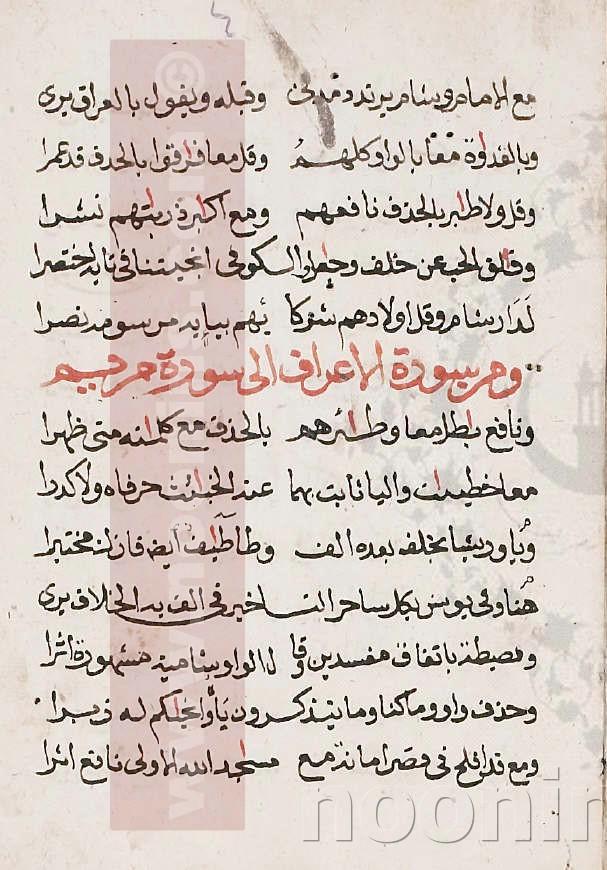 مع الامام وشام يرتدد مدني وقبله ويقول بالعراق يرى
وبالغدوة معا بالواو كلهم وقل معا فارقوا بالحذف قد عمرا
وقل ولا طائر بالحذف نافعهم ومع اكابر ذريتهم نشرا
وفالق الحب عن خلف وجاعل والكوفى انجيتنا فى تايه اختصرا
لدار شام وقل اولادهم شركا يهم بيا به مرسومه نصرا
ومن سورة الاعراف الى سورة مريم
ونافع باطل معا وطائرهم بالحذف مع كلمته متى ظهرا
معا خطيئات واليا ثابت بهما عند الخبائث حرفاه ولا كدرا
ويا وريشا بخلف بعده الف وطا طائف ايضا فازك مختبرا
هنا وفى يونس بكل ساحر التاخير فى الف به الخلاف يرى
ومصيطة باتفاق مفسدين وقا ل الواو شامية مشهورة اثرا
وحذف واو وما كنا وما يتذكرون ياوانجاكم له زبرا
ومع قد افلح فى قصر امانة مع مسجد الله الاولى نافع اثرا
noonin